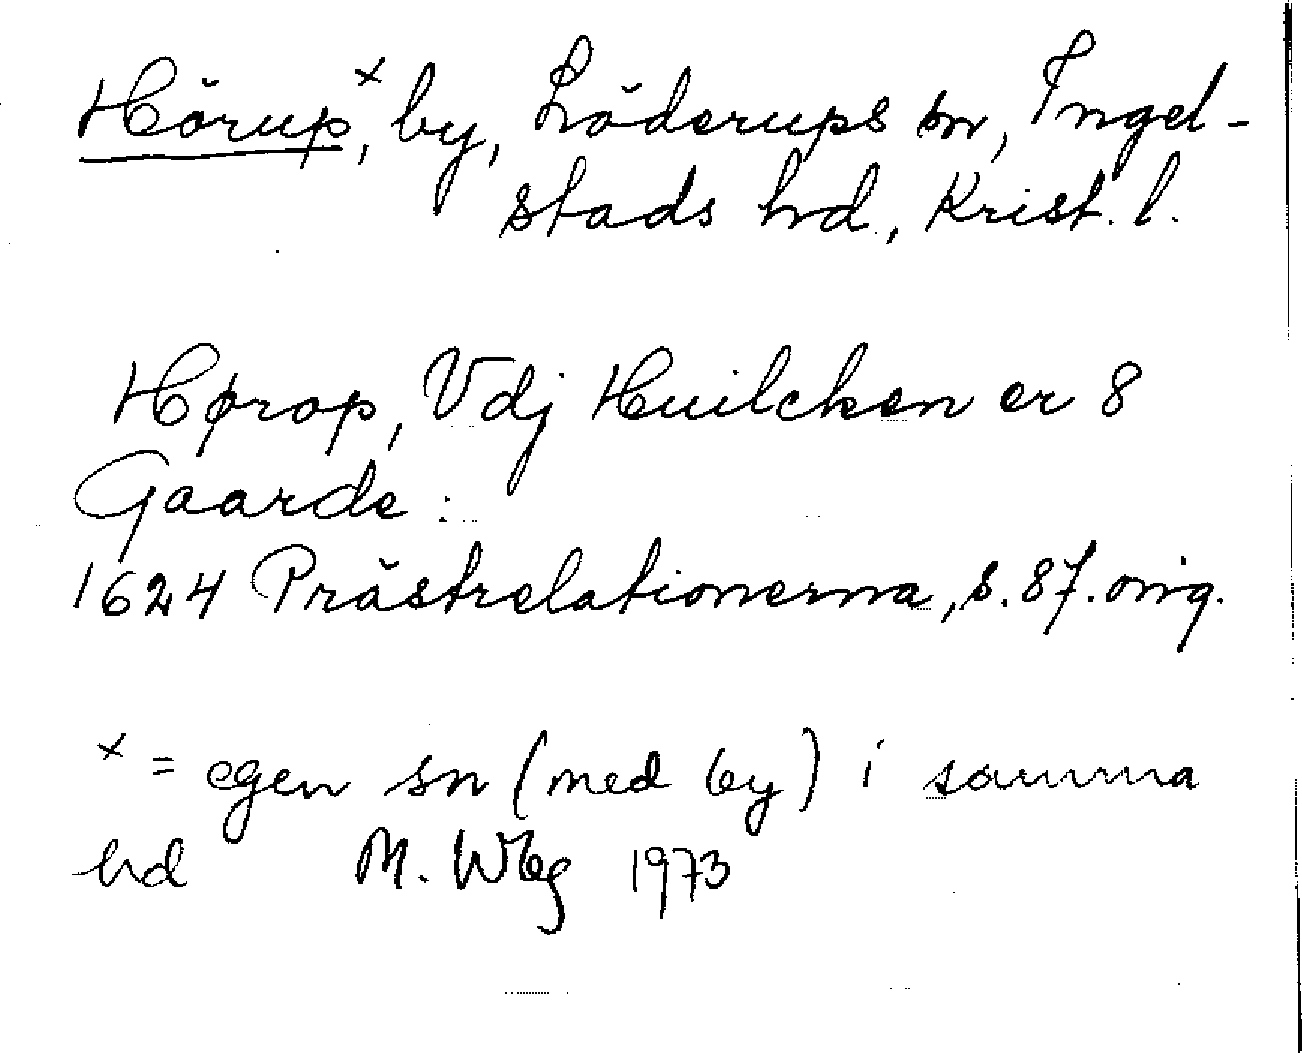 Hörup˟, by, Löderups sn, Ingel-
stads hrd., Krist. l.
Hørop, Vdj Huilcken er 8
Gaarde :
1624 Prästrelationerna, s. 87. orig.
× = egen sn (med by) i samma
hd M. Wbg 1973